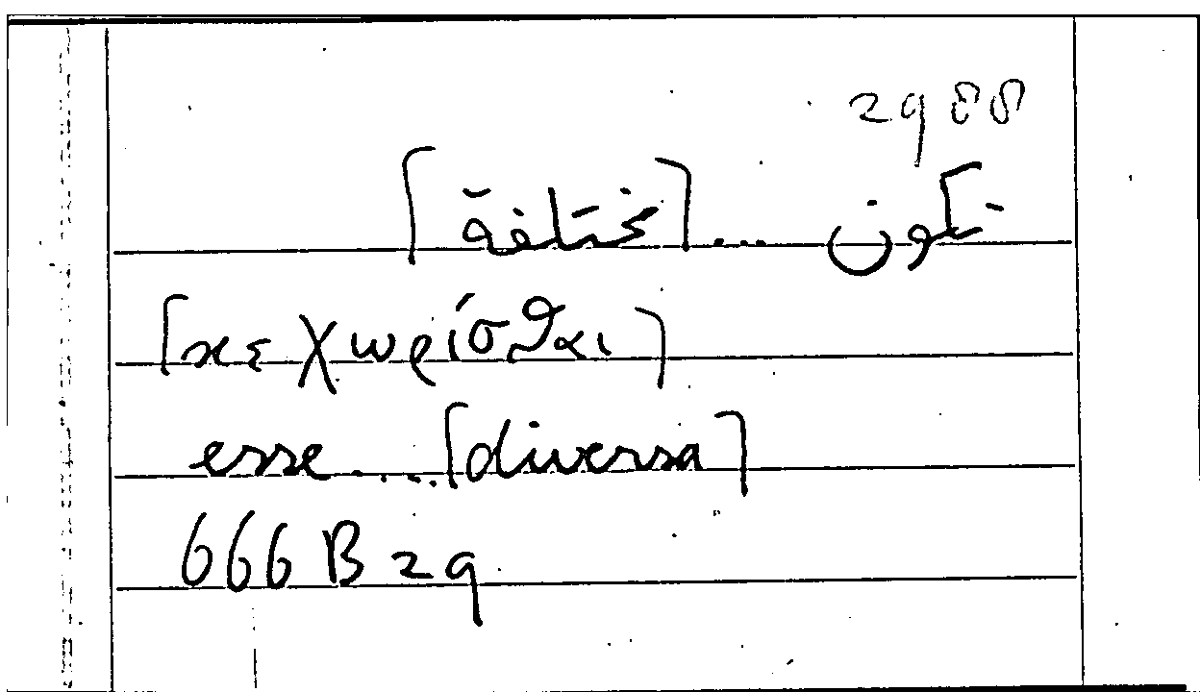 2988
تكون ... [مختلفة]
[κεχωρίσϑαι]
esse ..... [diversa]
666 B 29